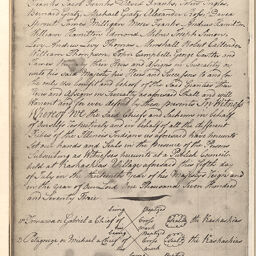 Franks Jacob Franks David Franks
Bernard Gratz, Michael Gratz, Alexander Ross, David
James Milligan Moses Franks Andrew Hamilton
William Hamilton Edmund Milne Joseph Simon
Levi Andrew Levy Thomas Marshall Robert Callender
William Thompson John Campbell George Castles and
James their Heirs and Assigns in Severalty or
unto his said Majesty his Heirs and Successors to and for
the only use benefit and behoof of the said Grantees their
Heirs and Assigns in Severalty as aforesaid shall and will
Warrant and for ever defend by these presents In Witness
Whereof We the said Chiefs and Sachems in behalf
of ourselves respectively and in behalf of all the different
Tribes of the Illinois Indians as aforesaid have hereunto
set our hands and Seals in the presence of the Persons
Subscribing as Witnesses hereunto at a Publick Council
held at Kaskaskias Village aforesaid this fifth day
of July in the thirteenth Year of his Majestys Reign and
in the year of our Lord One Thousand Seven Hundred
and Seventy Three
being baptized
or Gabriel a Chief of the Kaskaskias
his mark
being baptized
or Michael a Chief of the Kaskaskias
his mark